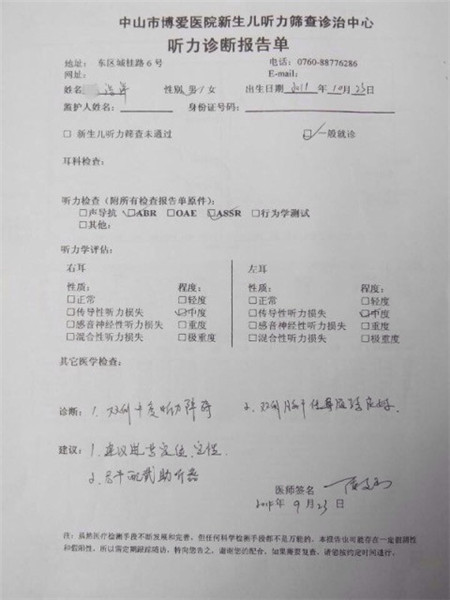 中山市博爱医院新生儿听力筛查诊治中心
听力诊断报告单
地址： 东区城桂路6号 电话：0760-88776286
网址： E-mail：
姓名 性别 男/女 出生日期 2011 年 10 月 23 日
监护人姓名： 身份证号码：
□ 新生儿听力筛查未通过 ☑一般就诊
耳科检查：
听力检查（附所有检查报告单原件）：
□声导抗 ☑ABR □OAE ☑ASSR □行为学测试
□其他：
听力学评估：
右耳 左耳
性质： 程度： 性质： 程度：
□正常 □轻度 □正常 □轻度
□传导性听力损失 ☑中度 □传导性听力损失 ☑中度
□感音神经性听力损失 □重度 □感音神经性听力损失 □重度
□混合性听力损失 □极重度 □混合性听力损失 □极重度
其它医学检查：
诊断： 1、双侧中度听力障碍 2、双侧脑干
建议： 1、建议 定位
2、 配戴助听器
医师签名
2015 年 9 月 23 日
注：虽然医疗检测手段不断发展和完善，但任何科学检测手段都不是万能的，本报告也可能存在一定假阴性
和假阳性，所以需定期跟踪随访，特向您告之。谢谢您的配合。如果需要复查，请您按约定时间进行。